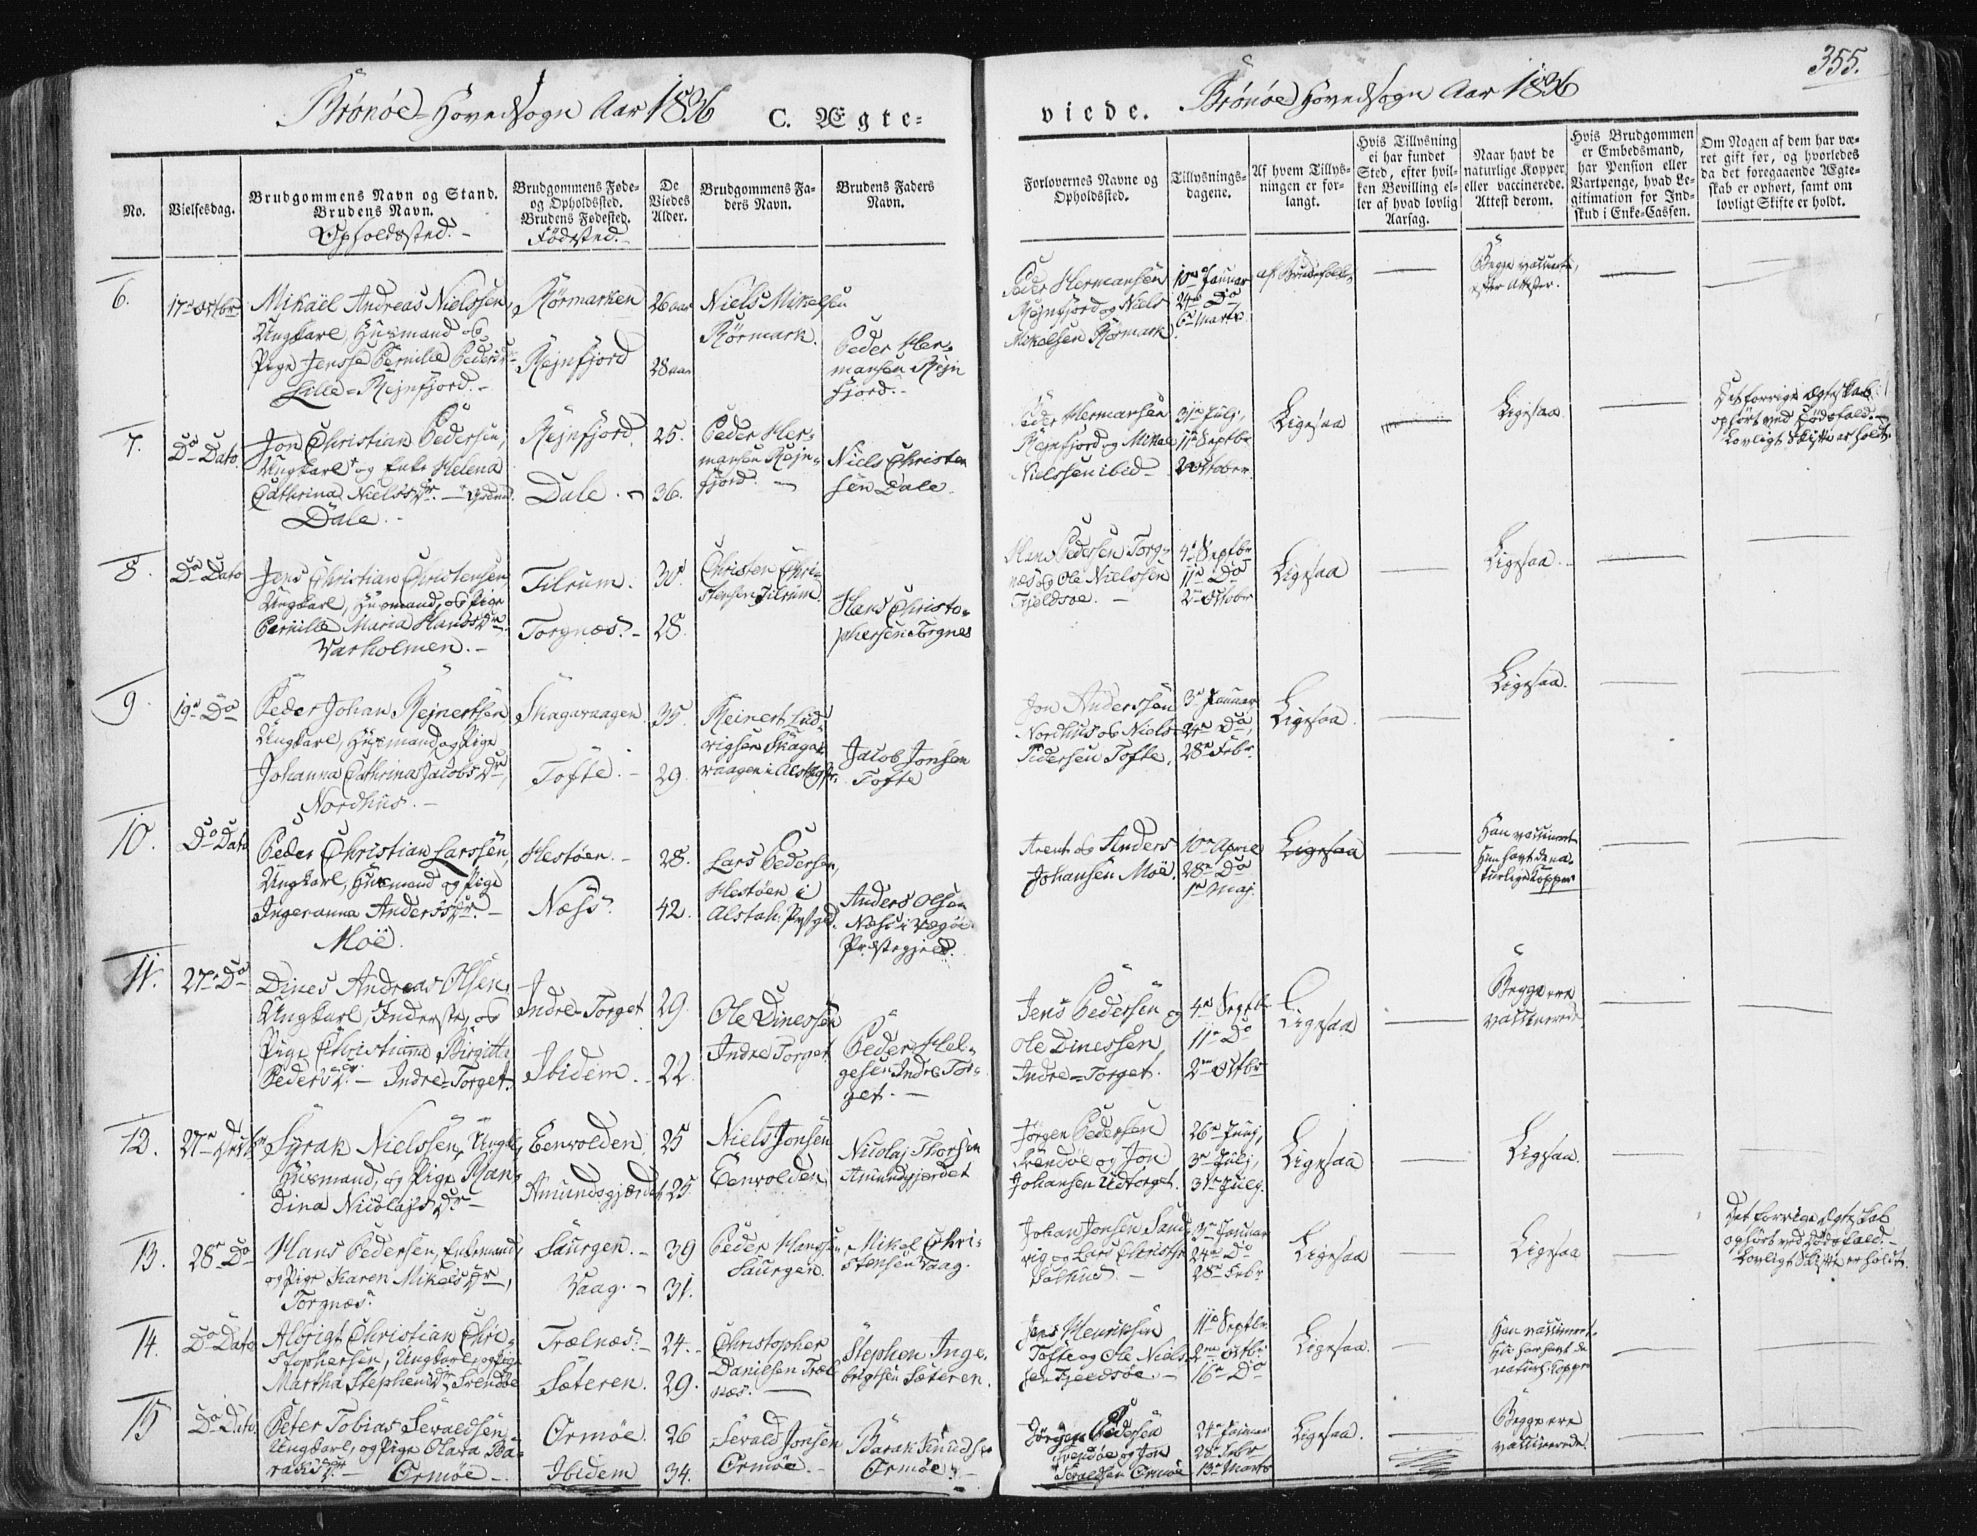 355.
Brönöe Hovedsogn Aar 1836
C. Ægte-
viede.
Brönöe Hovedsogn Aar 1836
No.
Vielsesdag.
Brudgommens Navn og Stand.
Brudens Navn.
Opholdssted.
Brudgommens Føde-
og Opholdssted.
Brudens Fødested.
Födested.
De
Viedes
Alder.
Brudgommens Fa-
ders Navn.
Brudens Faders
Navn.
Forlovernes Navne og
Opholdssted.
Tillysnings-
dagene.
Af hvem Tillys-
ningen er for-
langt.
Hvis Tillysning
ei har fundet
Sted, efter hvil-
ken Bevilling el-
ler af hvad lovlig
Aarsag.
Naar havt de
naturlige Kopper
eller vaccinerede.
Attest derom.
Hvis Brudgommen
er Embedsmand,
har Pension eller
Vartpenge, hvad Le-
gitimation for Ind-
skud i Enke-Cassen.
Om Nogen af dem har væ-
ret gift før, og hvorledes
da det foregaaende Ægte-
skab er ophørt, samt om
lovligt Skifte er holdt.
6.
17de Octbr
Mikael Andreas Nielssen,
Ungkarl, Husmand og
Pige Jensse Pernille Pedersdr
Lille-Rejnfjord.
Rörmarken
Rejnfjord
26 aar
28 aar
Niels Mikelsen
Rörmark.
Peder Her-
mansen Rejn
fjord.
Peder Hermansen
Rejnfjord og Niels
Mikelsen Rörmark.
10de Januar
24de Do
6te Marts
af Brudefolk
Begge vaccinerte,
efter Attester.
7.
Do Dato
Jon Christian Pedersen,
Ungkarl og Enke Helena
Cathrina Nielsdr.
Dale.
Rejnfjord
Dale.
25.
36.
Peder Her-
mansen Rejn-
fjord.
Niels Christen
sen Dale.
Peder Hermansen
Rejnfjord og Mikal
Nielssen ibid
31te Julj,
11te Septbr
2 October
Ligesaa
Ligesaa.
Det forrige Ægteskab
ophört ved Dödsfald.
Lovligt Skifte er holdt.
8.
Do Dato
Jens Christian Christensen
Ungkarl, Husmand, og Pige
Pernille Maria Hansdr.
Varholmen.
Tilrum.
Torgnæs.
30.
28.
Christen Chri-
stensen Tilrum.
Hans Christo-
phersen Torgnes
Hans Pedersen Torg-
næs og Ole Nielssen
Tjeldsöe.
4de Septbr
11te Do
2den Octobr
Ligesaa
Ligesaa.
9.
19de Do
Peder Johan Rejnertsen
Ungkarl, Husmand og Pige
Johanna Cathrina Jacobsdr,
Nordhus.
Skagavaagen.
Tofte.
35.
29.
Reinert Lud-
vigsen Skaga-
vaagen i Alstahg Pr.
Jacob Jonsen
Tofte
Jon Anderssen
Nordhus og Niels
Pedersen Tofte.
3de Januar
24de Do,
28de Febr
Ligesaa.
Ligesaa.
10.
Do Dato
Peder Christian Larssen,
Ungkarl, Husmand og Pige
Ingeranna Andersdr.
Moe.
Hestöen.
Næss.
28.
42.
Lars Pedersen,
Hestöen i
Alstah. Pstgd.
Anders Olsen
Næss i Vegöe
Præstegjeld.
Arent og Anders
Johansen Moe.
10de April
28de Do
1ste Maj.
Ligesaa
Han vaccineret
Hun havt de na-
turlige Kopper
11.
27de Do
Dines Andreas Olsen,
Ungkarl, Inderste, og
Pige Christianna Birgitte
Pedersdr. Indre-Torget.
Indre-Torget
Ibidem.
29.
22.
Ole Dinessen
Indre Torget
Peder Hel-
gesen Indre Tor-
get.
Jens Pedersen og
Ole Dinessen
Indre-Torget.
4de Septbr
11te Do
2den Octbr
Ligesaa
Begge ere
vaccinerede
12.
27de Decbr
Syrak Nielssen, Ungk.,
Husmand, og Pige Man-
dina Nicolajsdr
Eenvolden
Amundsgjærdet
25
25.
Niels Jonsen
Eenvolden
Nicolaj Thorsen
Amundgjærdet
Jörgen Pedersen
Svendöe og Jon
Johansen Udtorget.
26de Junj,
3de Julj,
31te Julj.
Ligesaa
Ligesaa.
13.
28de Do
Hans Pedersen, Enkemand,
og Pige Karen Mikelsdr,
Torgnæs.
Saurgen.
Vaag.
39
31.
Peder Hanssen
Saurgen.
Mikel Chri-
stensen Vaag.
Johan Jonsen Sand-
vig og Lars Christ.
Salhus.
3de Januar
24de Do
28de Febr
Ligesaa
Ligesaa
Det forrige Ægteskab
ophört ved Dödsfald.
Lovligt Skifte er holdt.
14.
Do Dato
Albrigt Christian Chri-
stophersen, Ungkarl, og Pige
Martha Stephensdr Svendöe
Trælnæs.
Sæteren.
24.
29.
Christopher
Danielsen Træl
næs.
Stephen Inge-
brigtsen Sæteren.
Jens Henriksen
Tofte og Ole Niels-
sen Tjeldsöe.
11te Septbr
2den Octbr
16de Do
Ligesaa.
Han vaccineret.
Hun har havt de
naturl. Kopper
15
Do Dato.
Peter Tobias Sevaldsen,
Ungkarl, og Pige Olava Ba-
raksdr. Ormöe.
Ormöe.
Ibidem
26
34.
Sevald Jonsen
Ormöe.
Barak Knudsen
Ormöe.
Jörgen Pedersen
Svendöe og Jon
Sevaldsen Ormöe
24de Januar
28de Febr
13de Marts
Ligesaa.
Begge ere
vaccinerede.